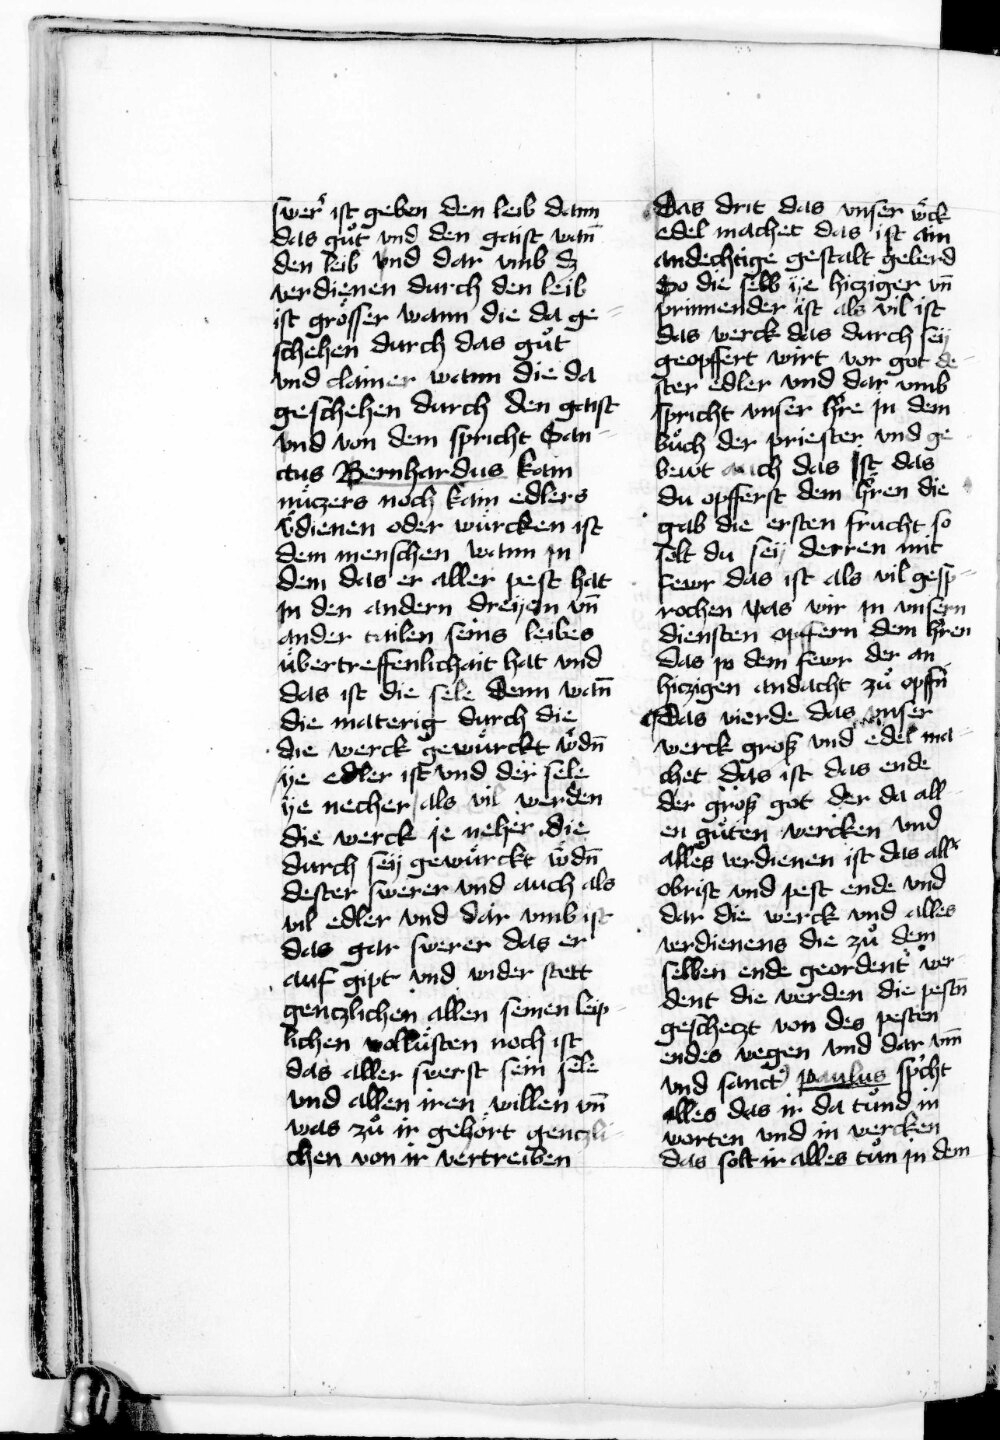 swer᷒ ist geben den leib dann
das guͦt vnd den gaist wañ
den leib vnd dar vmb dz
verdienen durch den leib
ist groͤsser wann die da ge⸗
schehen durch das guͦt
vnd clainer wann die da
geschehen durch den gaist
vnd von dem spricht San⸗
ctus Bernhardus kain
nuͤczers noch kain edlers
v᷒dienen oder wuͤrcken ist
dem menschen wann in
dem das er aller pest hat
in den andern dreyen vn̄
ander tailen seins leibes
uͤbertreffenlichait hat vnd
das ist die sele Denn wañ
die materig durch die
die werck gewuͤrckt w᷒dn̄
ÿe edler ist vnd der sele
ÿe necher als vil werden
die werck ie neher die
durch seÿ gewuͤrckt w᷒dn̄
dester swerer vnd auch als
vil edler vnd dar vmb ist
das gar swerer das er
auf gipt vnd wider stett
genczlichen allen seinen leip⸗
lichen volluͤsten noch ist
das aller swerst sein sele
vnd allen iren willen vn̄
was zuͦ ir gehoͤrt genczli⸗
chen von ir vertreiben
Das drit das vnser w᷒ck
edel machet das ist ain
andechtige gestalt gelerd
So die selb ÿe hicziger vn̄
prinnender ist als vil ist
das werck das durch seÿ
geopffert wirt vor got de⸗
ster edler vnd dar vmb
spricht vnser hr̄e in dem
buͦch der priester vnd ge
bewt auch das Ist das
du opfferst dem hr̄en die
gab die ersten frucht so
solt du seÿ derren mit
fewr das ist als vil gesp⸗
rochen was wir in vnsern
diensten opffern dem hr̄en
das in dem fewr der an
hiczigen andacht zuͦ opffn̄
Das vierde das vnser
werck groß vnd edel ma⸗
chet das ist das ende
der groͤß got der da all
en guͦten wercken vnd
alles verdienen ist das all᷒
obrist vnd pest ende vnd
dar die werck vnd alles
verdienens die zuͦ dem
selben ende geordent wer⸗
dent die werden die pestn̄
gescheczt von des pesten
endes wegen vnd dar vm̄
vnd sanct᷒ paulus sp᷒cht
alles das ir da tuͦnd in
worten vnd in wercken
das solt ir alles tuͦn in dem